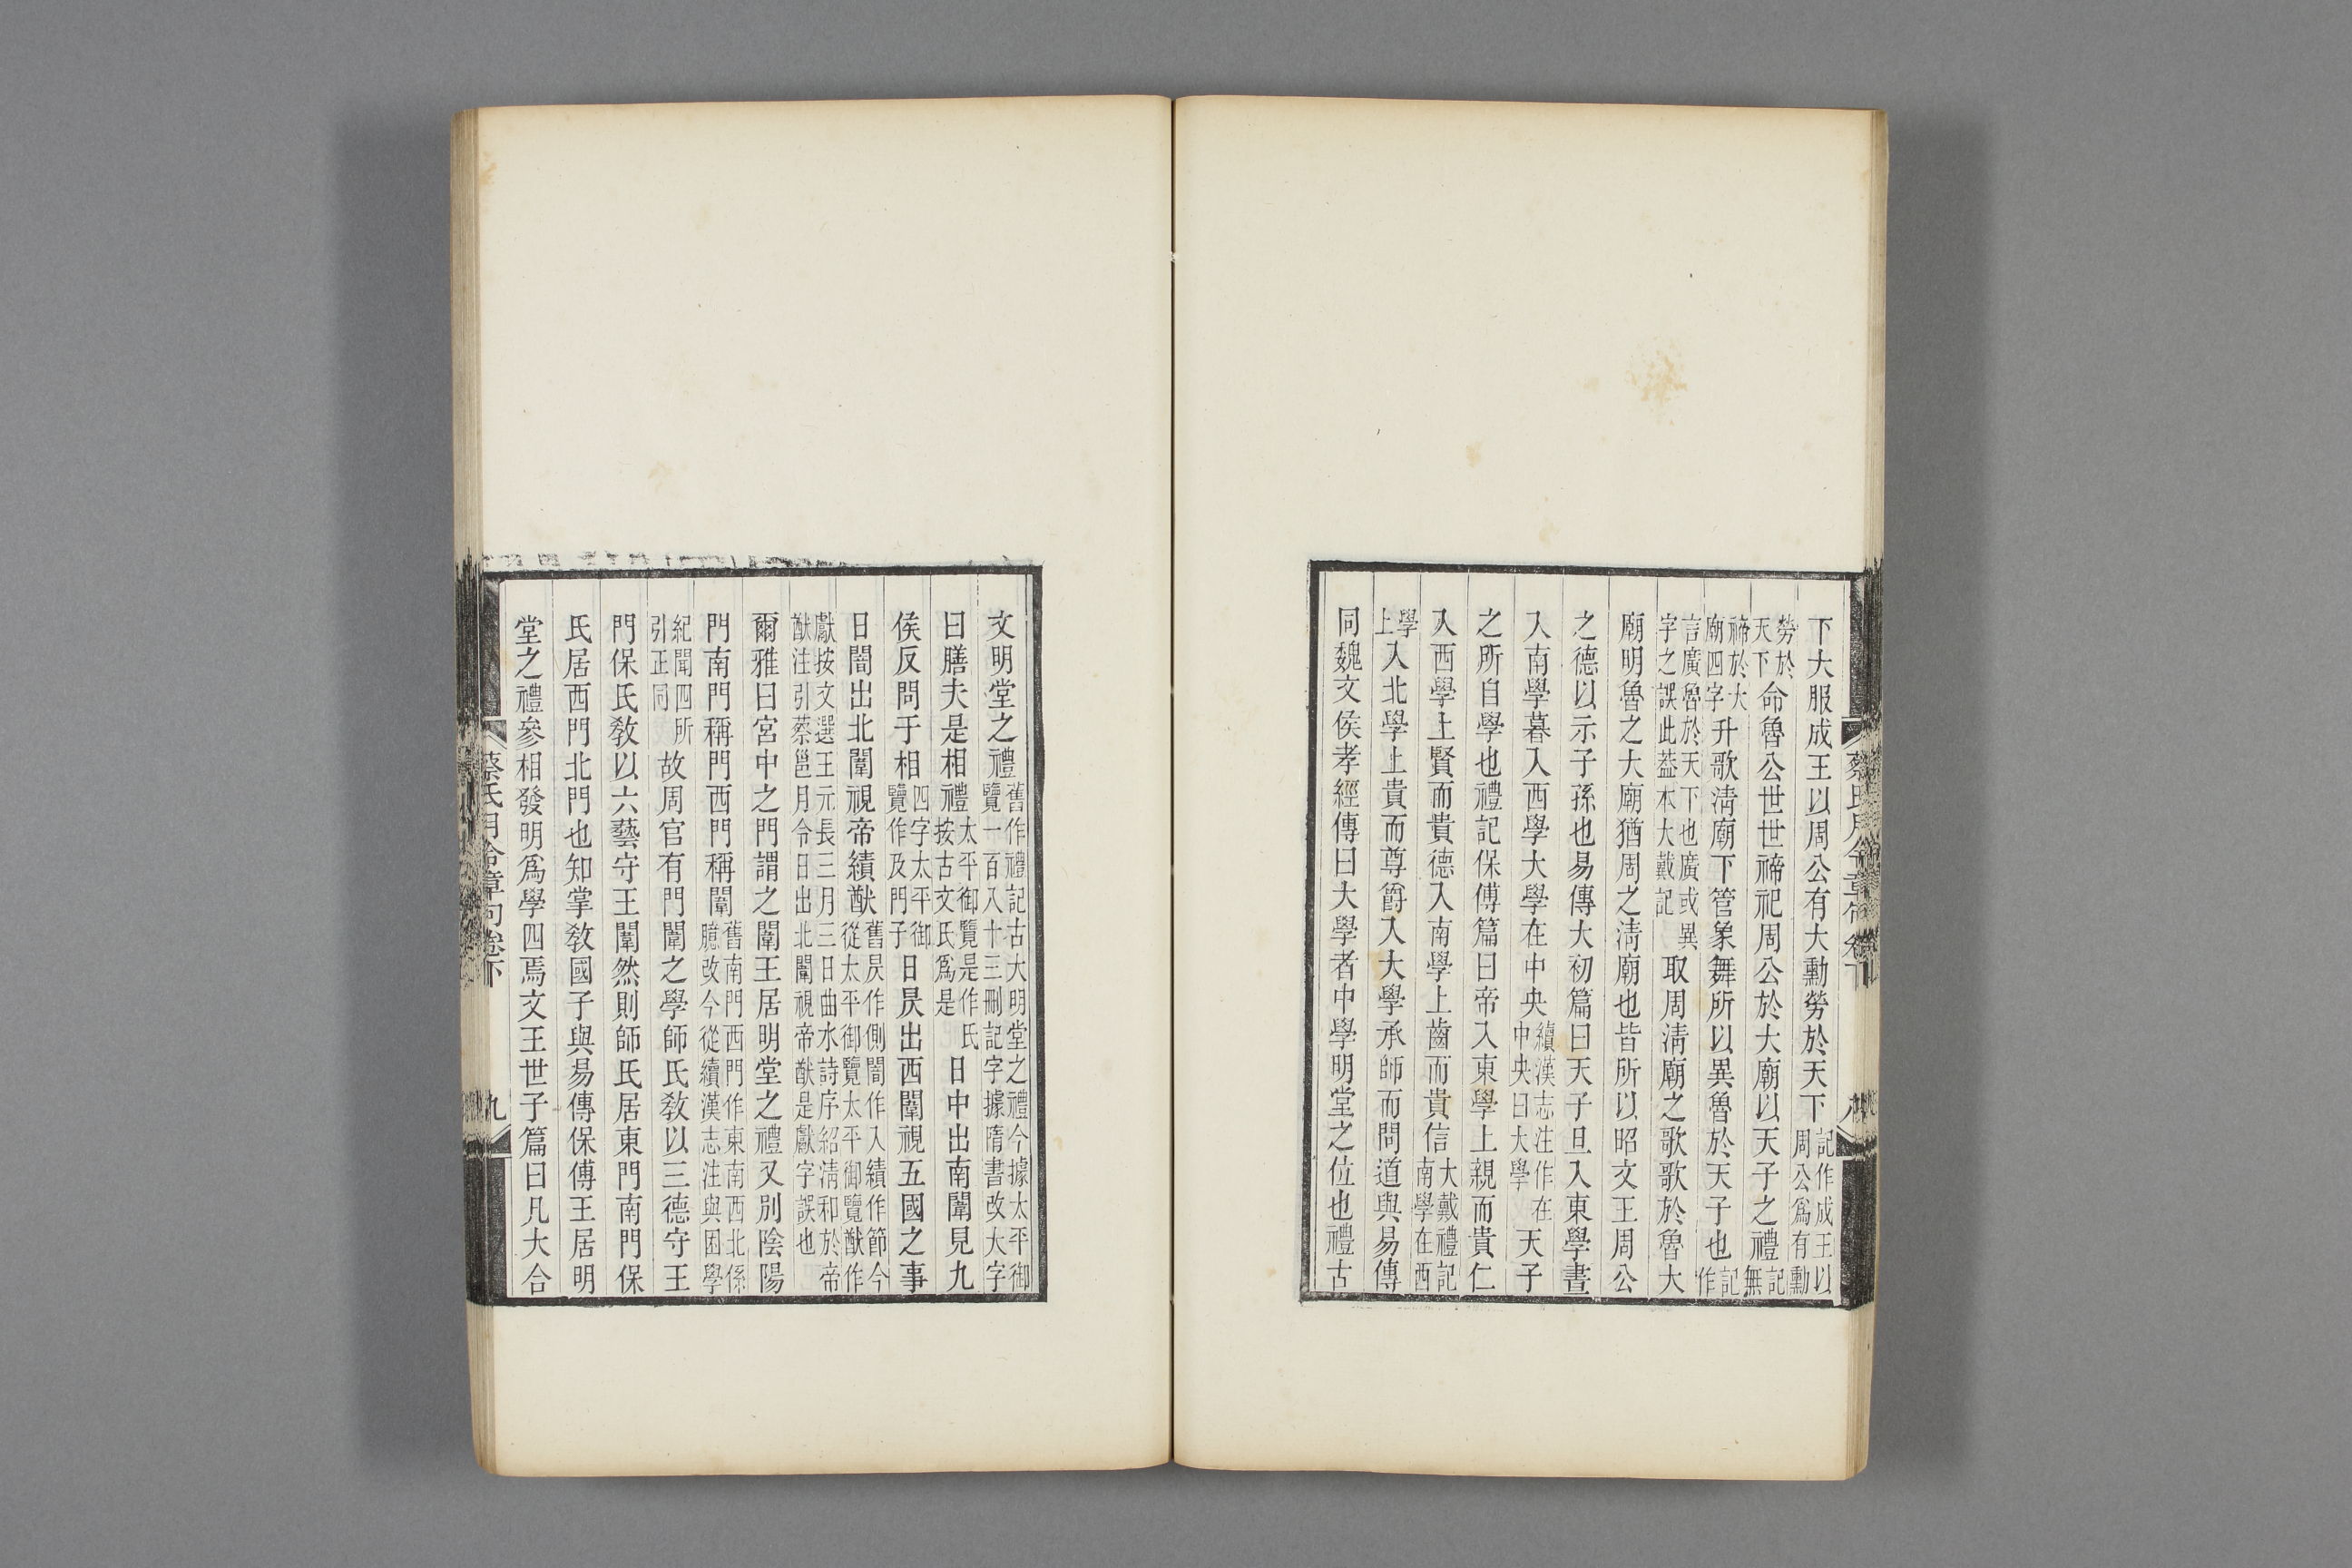 下大服成王以周公有大勳勞於天下記作成王以周公爲有勳
勞於天下命魯公世世禘祀周公於大廟以天子之禮記無
禘於大廟四字升歌淸廟下管象舞所以異魯於天子也記作
言廣魯於天下也廣或異字之誤此葢本大戴記取周淸廟之歌歌於魯大
廟明魯之大廟猶周之淸廟也皆所以昭文王周公
之德以示子孫也易傳大初篇曰天子旦入東學晝
入南學暮入西學大學在中央續漢志注作在中央曰大學天子
之所自學也禮記保傅篇曰帝入東學上親而貴仁
入西學上賢而貴德入南學上齒而貴信大戴禮記南學在西
學上入北學上貴而尊爵入大學承師而問道與易傳
同魏文侯孝經傳曰大學者中學明堂之位也禮古
蔡氏月令章句卷下
八
文明堂之禮舊作禮記古大明堂之禮今據太平御覽一百八十三刪記字據隋書改大字
曰膳夫是相禮太平御覽是作氏按古文氏爲是日中出南闈見九
侯反問于相四字太平御覽作及門子日昃出西闈視五國之事
日闇出北闈視帝績猷舊昃作側闇作入績作節今從太平御覽太平御覽猷作
獻按文選王元長三月三日曲水詩序紹淸和於帝猷注引蔡邕月令日出北闈視帝猷是獻字誤也
爾雅曰宮中之門謂之闈王居明堂之禮又別陰陽
門南門稱門西門稱闈舊南門西門作東南西北係臆改今從續漢志注與困學
紀聞四所引正同故周官有門闈之學師氏敎以三德守王
門保氏敎以六藝守王闈然則師氏居東門南門保
氏居西門北門也知掌敎國子與易傳保傅王居明
堂之禮參相發明爲學四焉文王世子篇曰凡大合
蔡氏月令章句卷下
九